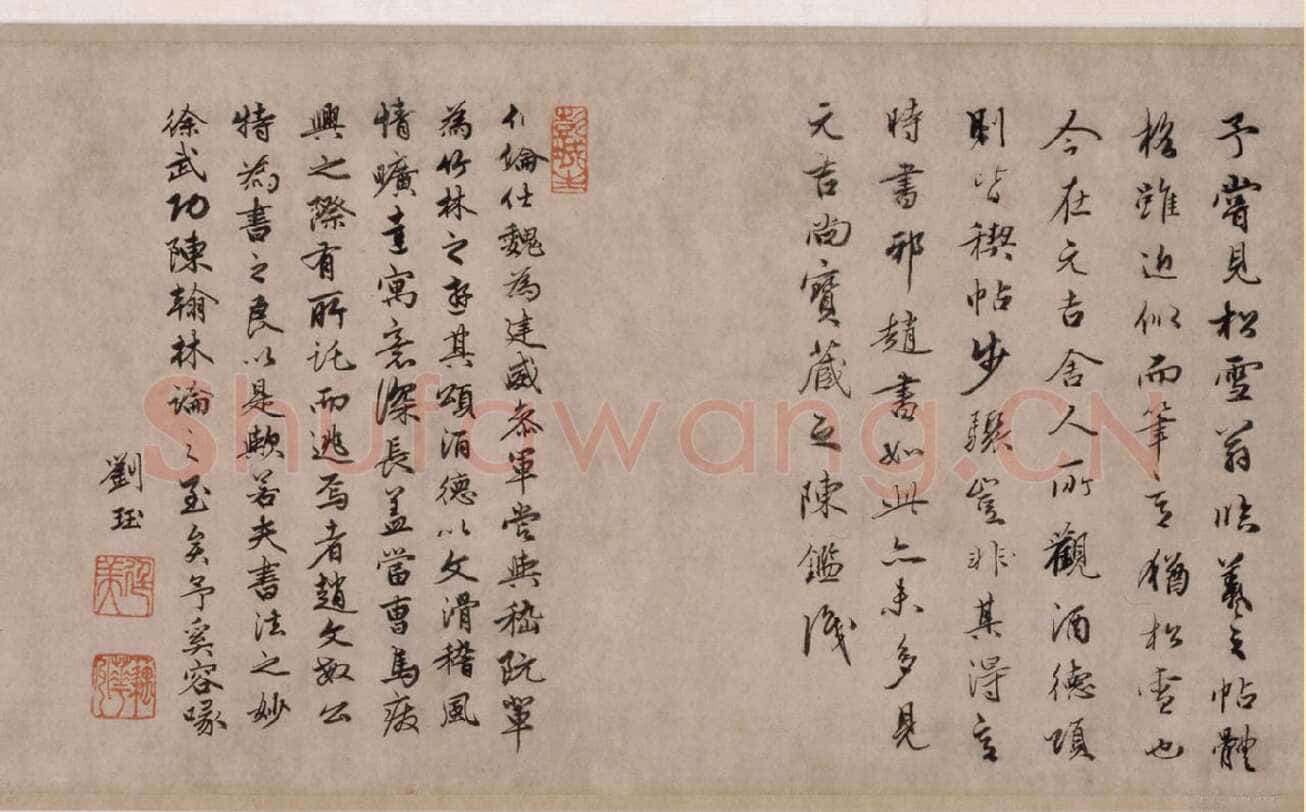 予嘗見松雪翁臨羲之帖體
格雖近似而筆意猶松雪也
今在元吉舍人所觀酒德頌
則皆稧帖步驟豈非其得意
時書邪趙書如此亦未多見
元吉尚寶藏之陳鑑識
彭城
伯倫仕魏為建威叅軍嘗與嵇阮輩
為竹林之遊其頌酒德以文滑稽風
情曠達寓意深長蓋當曹馬廢
興之際有所託而逃焉者趙文敏公
特為書之良以是歟若夫書法之妙
徐武功陳翰林論之至矣予奚容喙
劉珏
廷美
Shufawang.CN